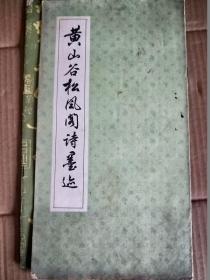 黄山谷松风阁詩墨迹